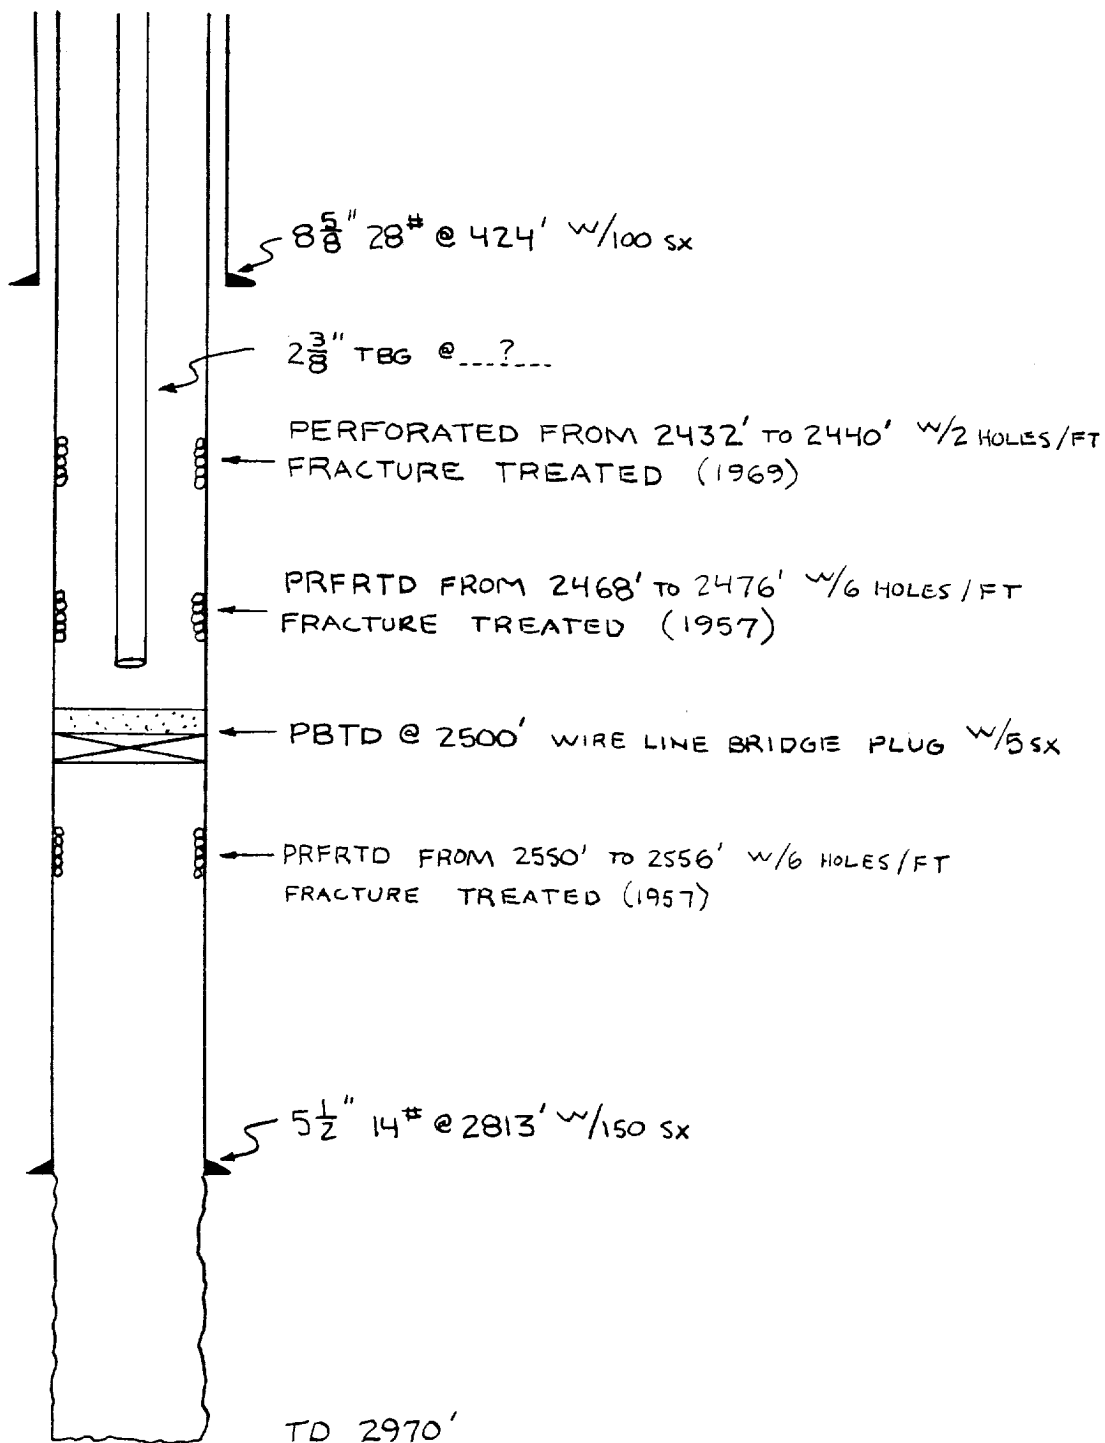 8 5/8" 28# @ 424' W/100 SX
2 3/8" TBG @ ...?...
PERFORATED FROM 2432' TO 2440' W/2 HOLES/FT
FRACTURE TREATED (1969)
PRFRTD FROM 2468' TO 2476' W/6 HOLES/FT
FRACTURE TREATED (1957)
PBTD @ 2500' WIRE LINE BRIDGE PLUG W/5 SX
PRFRTD FROM 2550' TO 2556' W/6 HOLES/FT
FRACTURE TREATED (1957)
5 1/2" 14# @ 2813' W/150 SX
TD 2970'